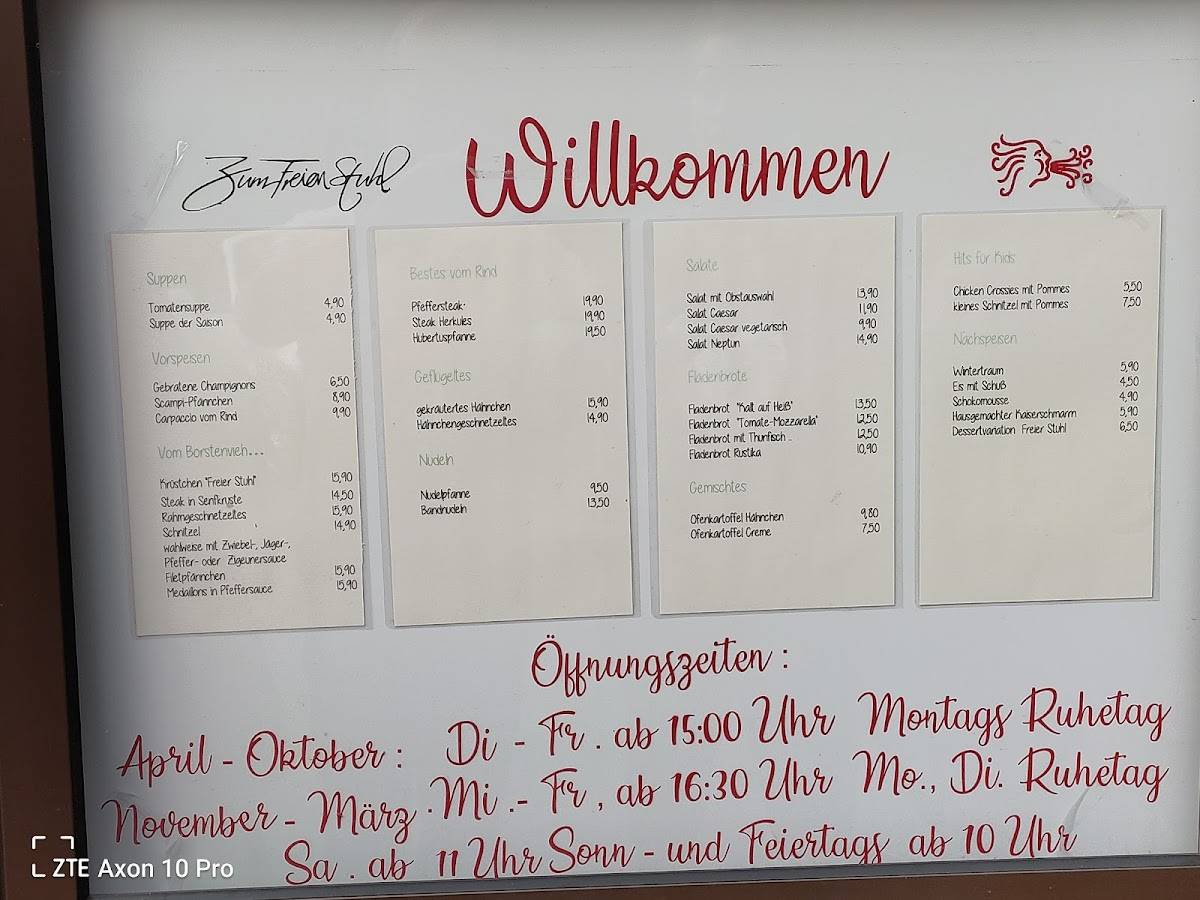 Zum Freien Stuhl
Willkommen
Suppen
Tomatensuppe 4,90
Suppe der Saison 4,90
Vorspeisen
Gebratene Champignons 6,50
Scampi-Pfännchen 8,90
Carpaccio vom Rind 9,90
Vom Borstenvieh...
Kröstchen "Freier Stuhl" 15,90
Steak in Senfkruste 14,50
Rahmgeschnetzeltes 15,90
Schnitzel 14,90
wahlweise mit Zwiebel-, Jäger-,
Pfeffer- oder Zigeunersauce
Filetpfännchen 15,90
Medaillons in Pfeffersauce 15,90
Bestes vom Rind
Pfeffersteak 19,90
Steak Herkules 19,90
Hubertuspfanne 19,50
Geflügeltes
gekräutertes Hähnchen 15,90
Hähnchengeschnetzeltes 14,90
Nudeln
Nudelpfanne 9,50
Bandnudeln 13,50
Salate
Salat mit Obstauswahl 13,90
Salat Caesar 11,90
Salat Caesar vegetarisch 9,90
Salat Neptun 14,90
Fladenbrote
Fladenbrot "Kalt auf Heiß" 13,50
Fladenbrot "Tomate-Mozzarella" 12,50
Fladenbrot mit Thunfisch .. 12,50
Fladenbrot Rustika 10,90
Gemischtes
Ofenkartoffel Hähnchen 9,80
Ofenkartoffel Creme 7,50
Hits für Kids
Chicken Crossies mit Pommes 5,50
kleines Schnitzel mit Pommes 7,50
Nachspeisen
Wintertraum 5,90
Eis mit Schuß 4,50
Schokomousse 4,90
Hausgemachter Kaiserschmarrn 5,90
Dessertvariation Freier Stuhl 6,50
Öffnungszeiten :
April - Oktober : Di - Fr . ab 15:00 Uhr Montags Ruhetag
November - März . Mi . - Fr , ab 16:30 Uhr Mo., Di. Ruhetag
Sa . ab 11 Uhr Sonn - und Feiertags ab 10 Uhr
ZTE Axon 10 Pro